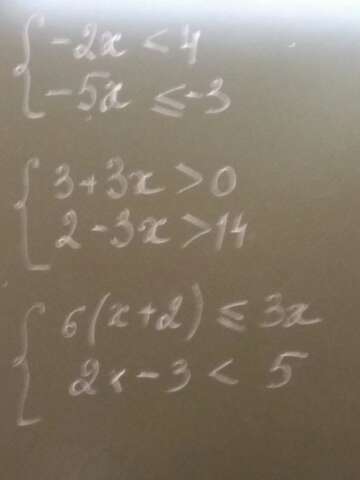 { -2x < 4
-5x ≤ -3
{ 3+3x > 0
2-3x > 14
{ 6(x+2) ≤ 3x
2x-3 < 5